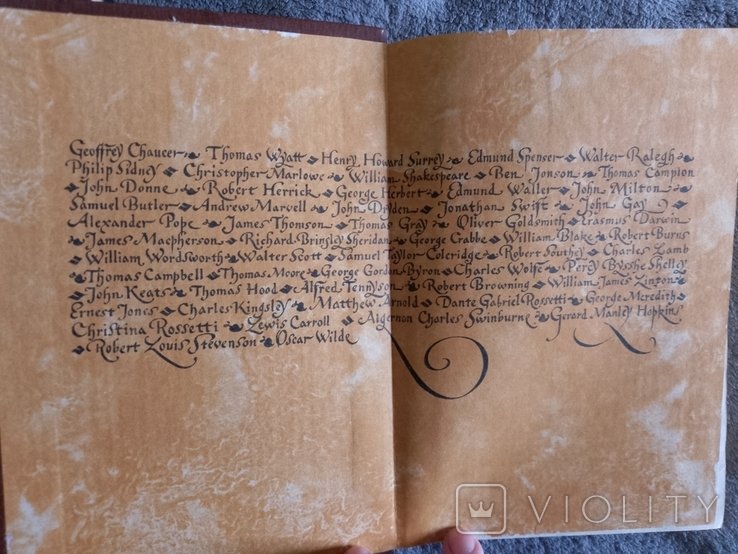 Geoffrey Chaucer Thomas Wyatt Henry Howard Surrey Edmund Spenser Walter Ralegh
Philip Sidney Christopher Marlowe William Shakespeare Ben Jonson Thomas Campion
John Donne Robert Herrick George Herbert Edmund Waller John Milton
Samuel Butler Andrew Marvell John Dryden Jonathan Swift John Gay
Alexander Pope James Thomson Thomas Gray Oliver Goldsmith Erasmus Darwin
James Macpherson Richard Brinsley Sheridan George Crabbe William Blake Robert Burns
William Wordsworth Walter Scott Samuel Taylor Coleridge Robert Southey Charles Lamb
Thomas Campbell Thomas Moore George Gordon Byron Charles Wolfe Percy Bysshe Shelley
John Keats Thomas Hood Alfred Tennyson Robert Browning William James Linton
Ernest Jones Charles Kingsley Matthew Arnold Dante Gabriel Rossetti George Meredith
Christina Rossetti Lewis Carroll Algernon Charles Swinburne Gerard Manley Hopkins
Robert Louis Stevenson Oscar Wilde
VIOLITY